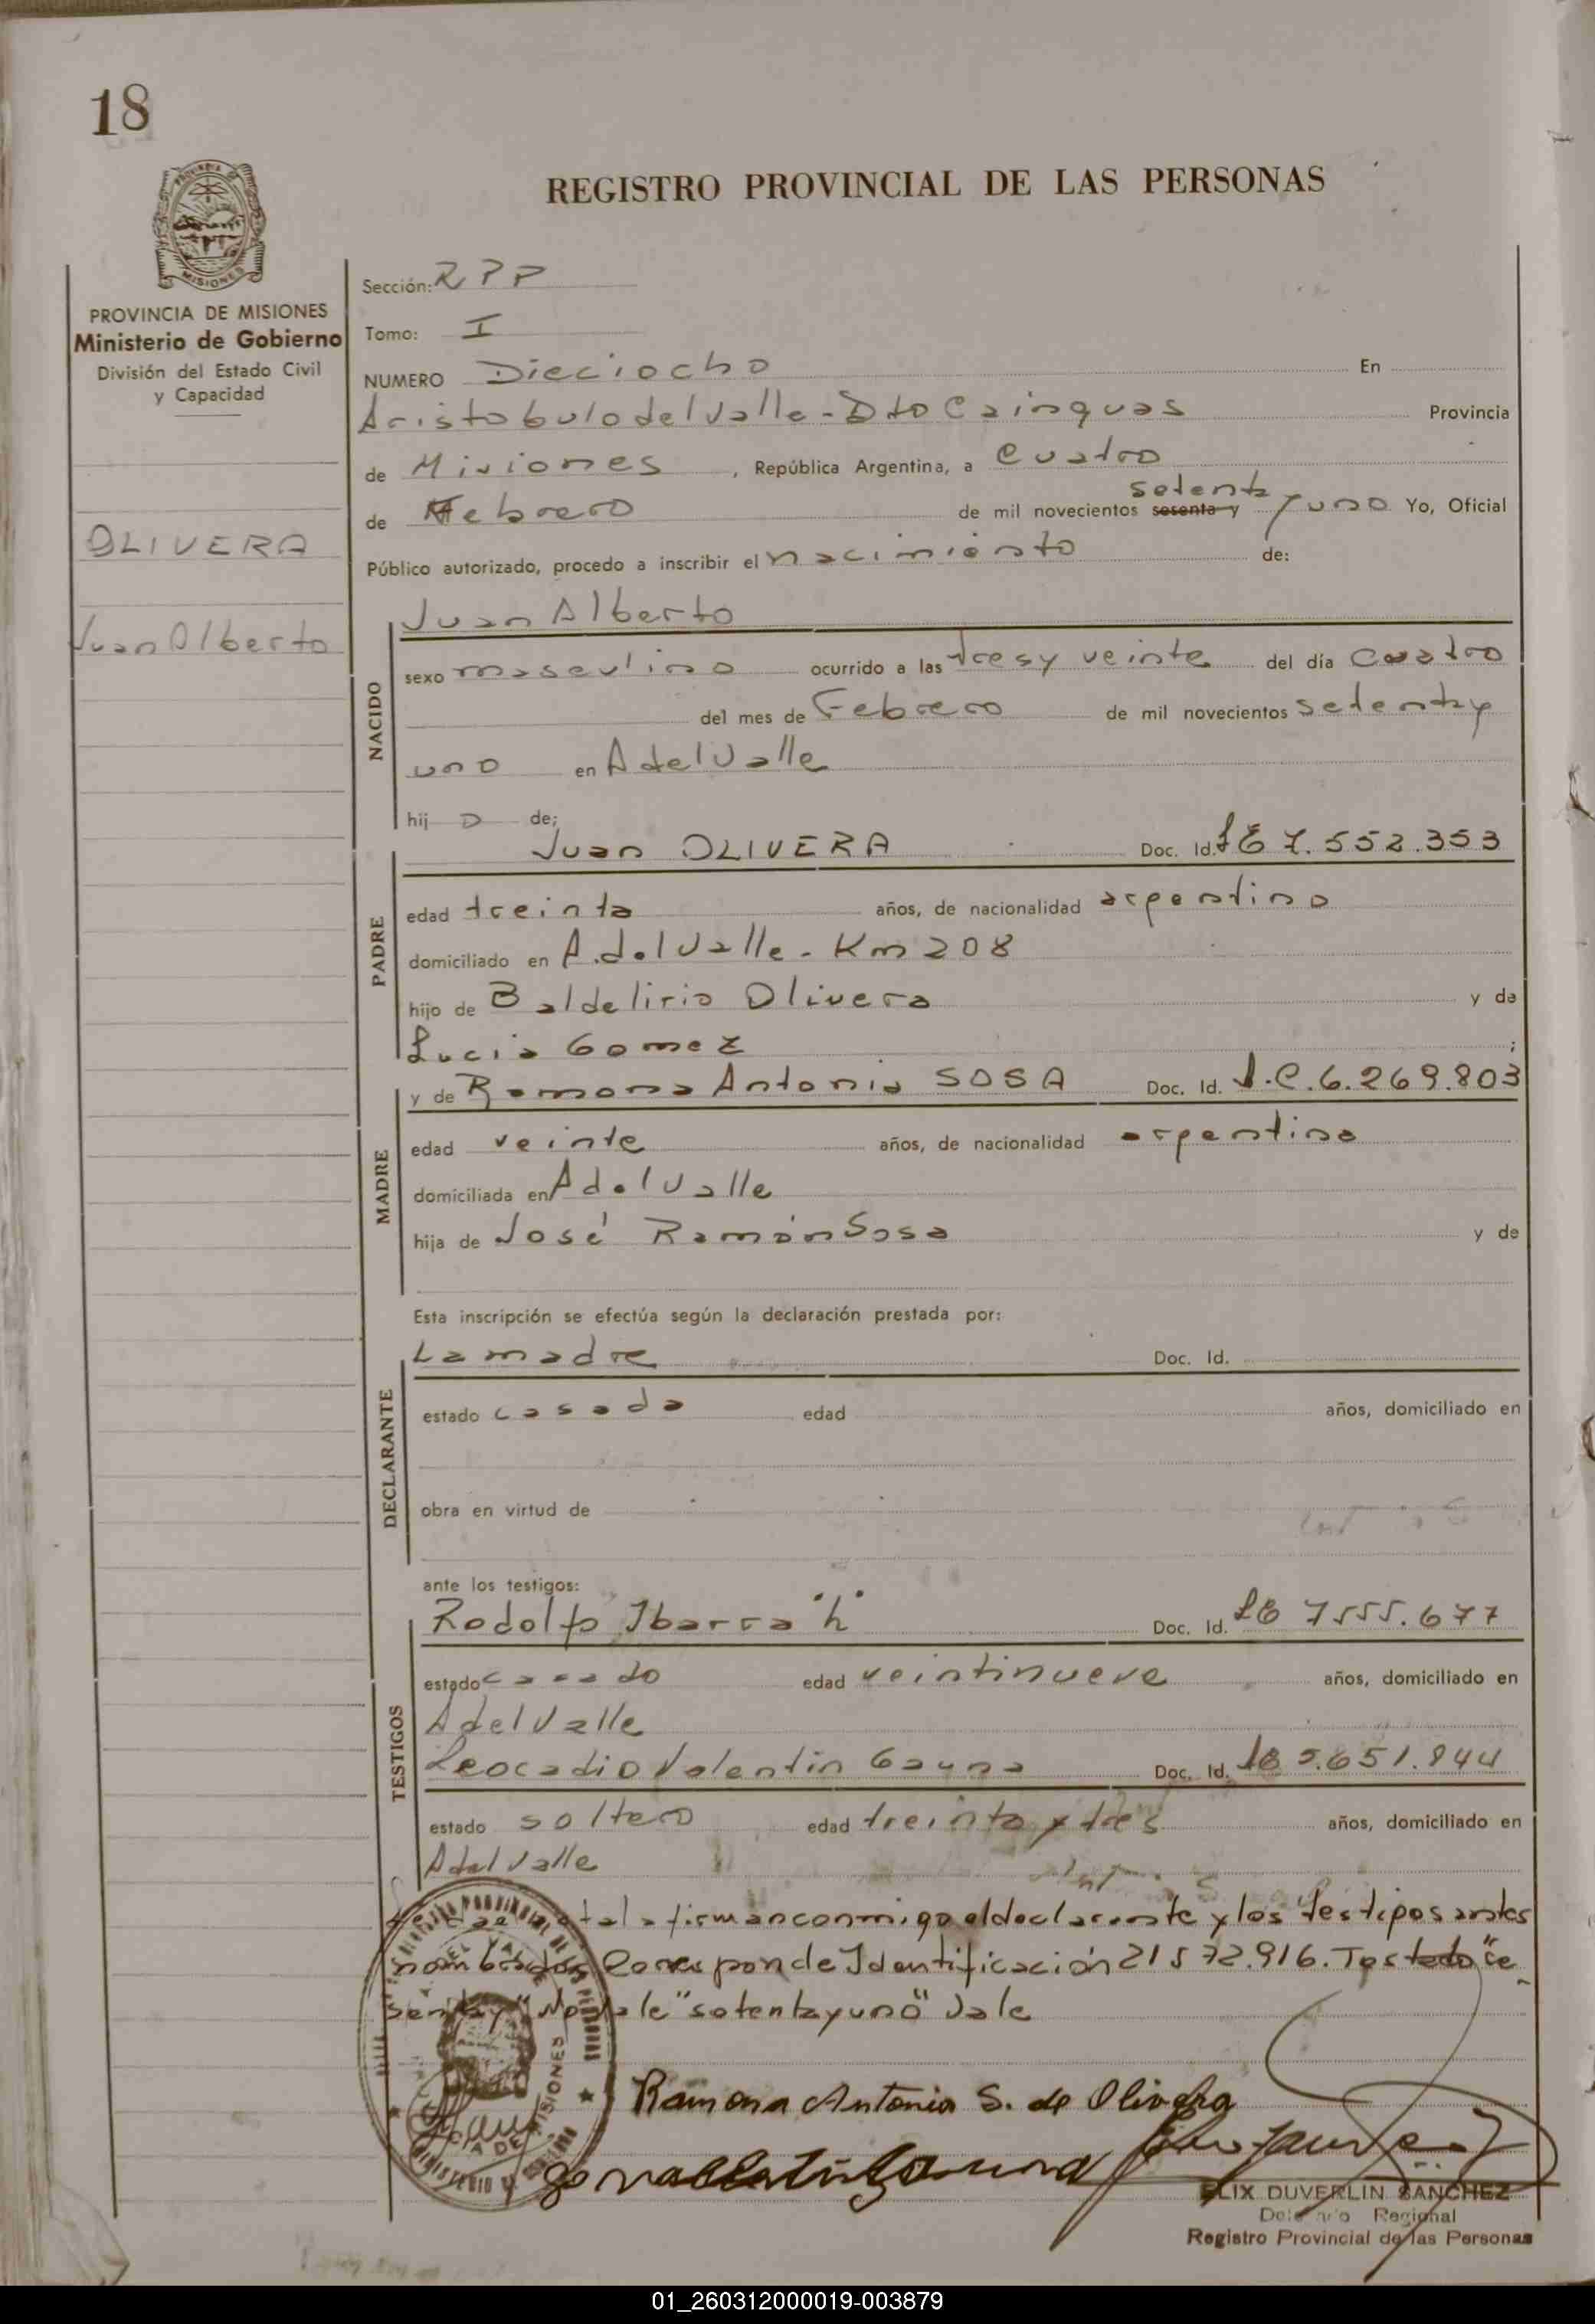 18
REGISTRO PROVINCIAL DE LAS PERSONAS
PROVINCIA
MISIONES
PROVINCIA DE MISIONES
Ministerio de Gobierno
División del Estado Civil
y Capacidad
OLIVERA
Juan Alberto
Sección: RPP
Tomo: I
NUMERO Dieciocho En
Aristobulo del Valle - Dto Cainguas Provincia
de Misiones, República Argentina, a Cuatro
de Febrero de mil novecientos sesenta y setenta y uno Yo, Oficial
Público autorizado, procedo a inscribir el nacimiento de:
Juan Alberto
NACIDO
sexo masculino ocurrido a las tres y veinte del día cuatro
del mes de Febrero de mil novecientos setenta y
uno en A del Valle
hij o de;
Juan OLIVERA Doc. Id. LE 7.552.353
PADRE
edad treinta años, de nacionalidad argentino
domiciliado en A. del Valle - Km 208
hijo de Baldelirio Olivera y de
Lucia Gomez ;
y de Ramona Antonia SOSA Doc. Id. L.C. 6.269.803
MADRE
edad veinte años, de nacionalidad argentina
domiciliada en A del Valle
hija de José Ramón Sosa y de
Esta inscripción se efectúa según la declaración prestada por:
La madre Doc. Id.
DECLARANTE
estado casada edad años, domiciliado en
obra en virtud de
ante los testigos:
Rodolfo Ibarra "h" Doc. Id. LE 7555.677
TESTIGOS
estado casado edad veintinueve años, domiciliado en
A del Valle
Leocadio Valentin Gauna Doc. Id. LE 5.651.844
estado soltero edad treinta y tres años, domiciliado en
A del Valle
firman conmigo el declarante y los testigos antes
nombrados Corresponde Identificación 21572.916. Testado "se
senta y" No vale "setenta y uno" Vale
Ramona Antonia S. de Olivera
FELIX DUVERLIN SANCHEZ
Delegado Regional
Registro Provincial de las Personas
01_260312000019-003879